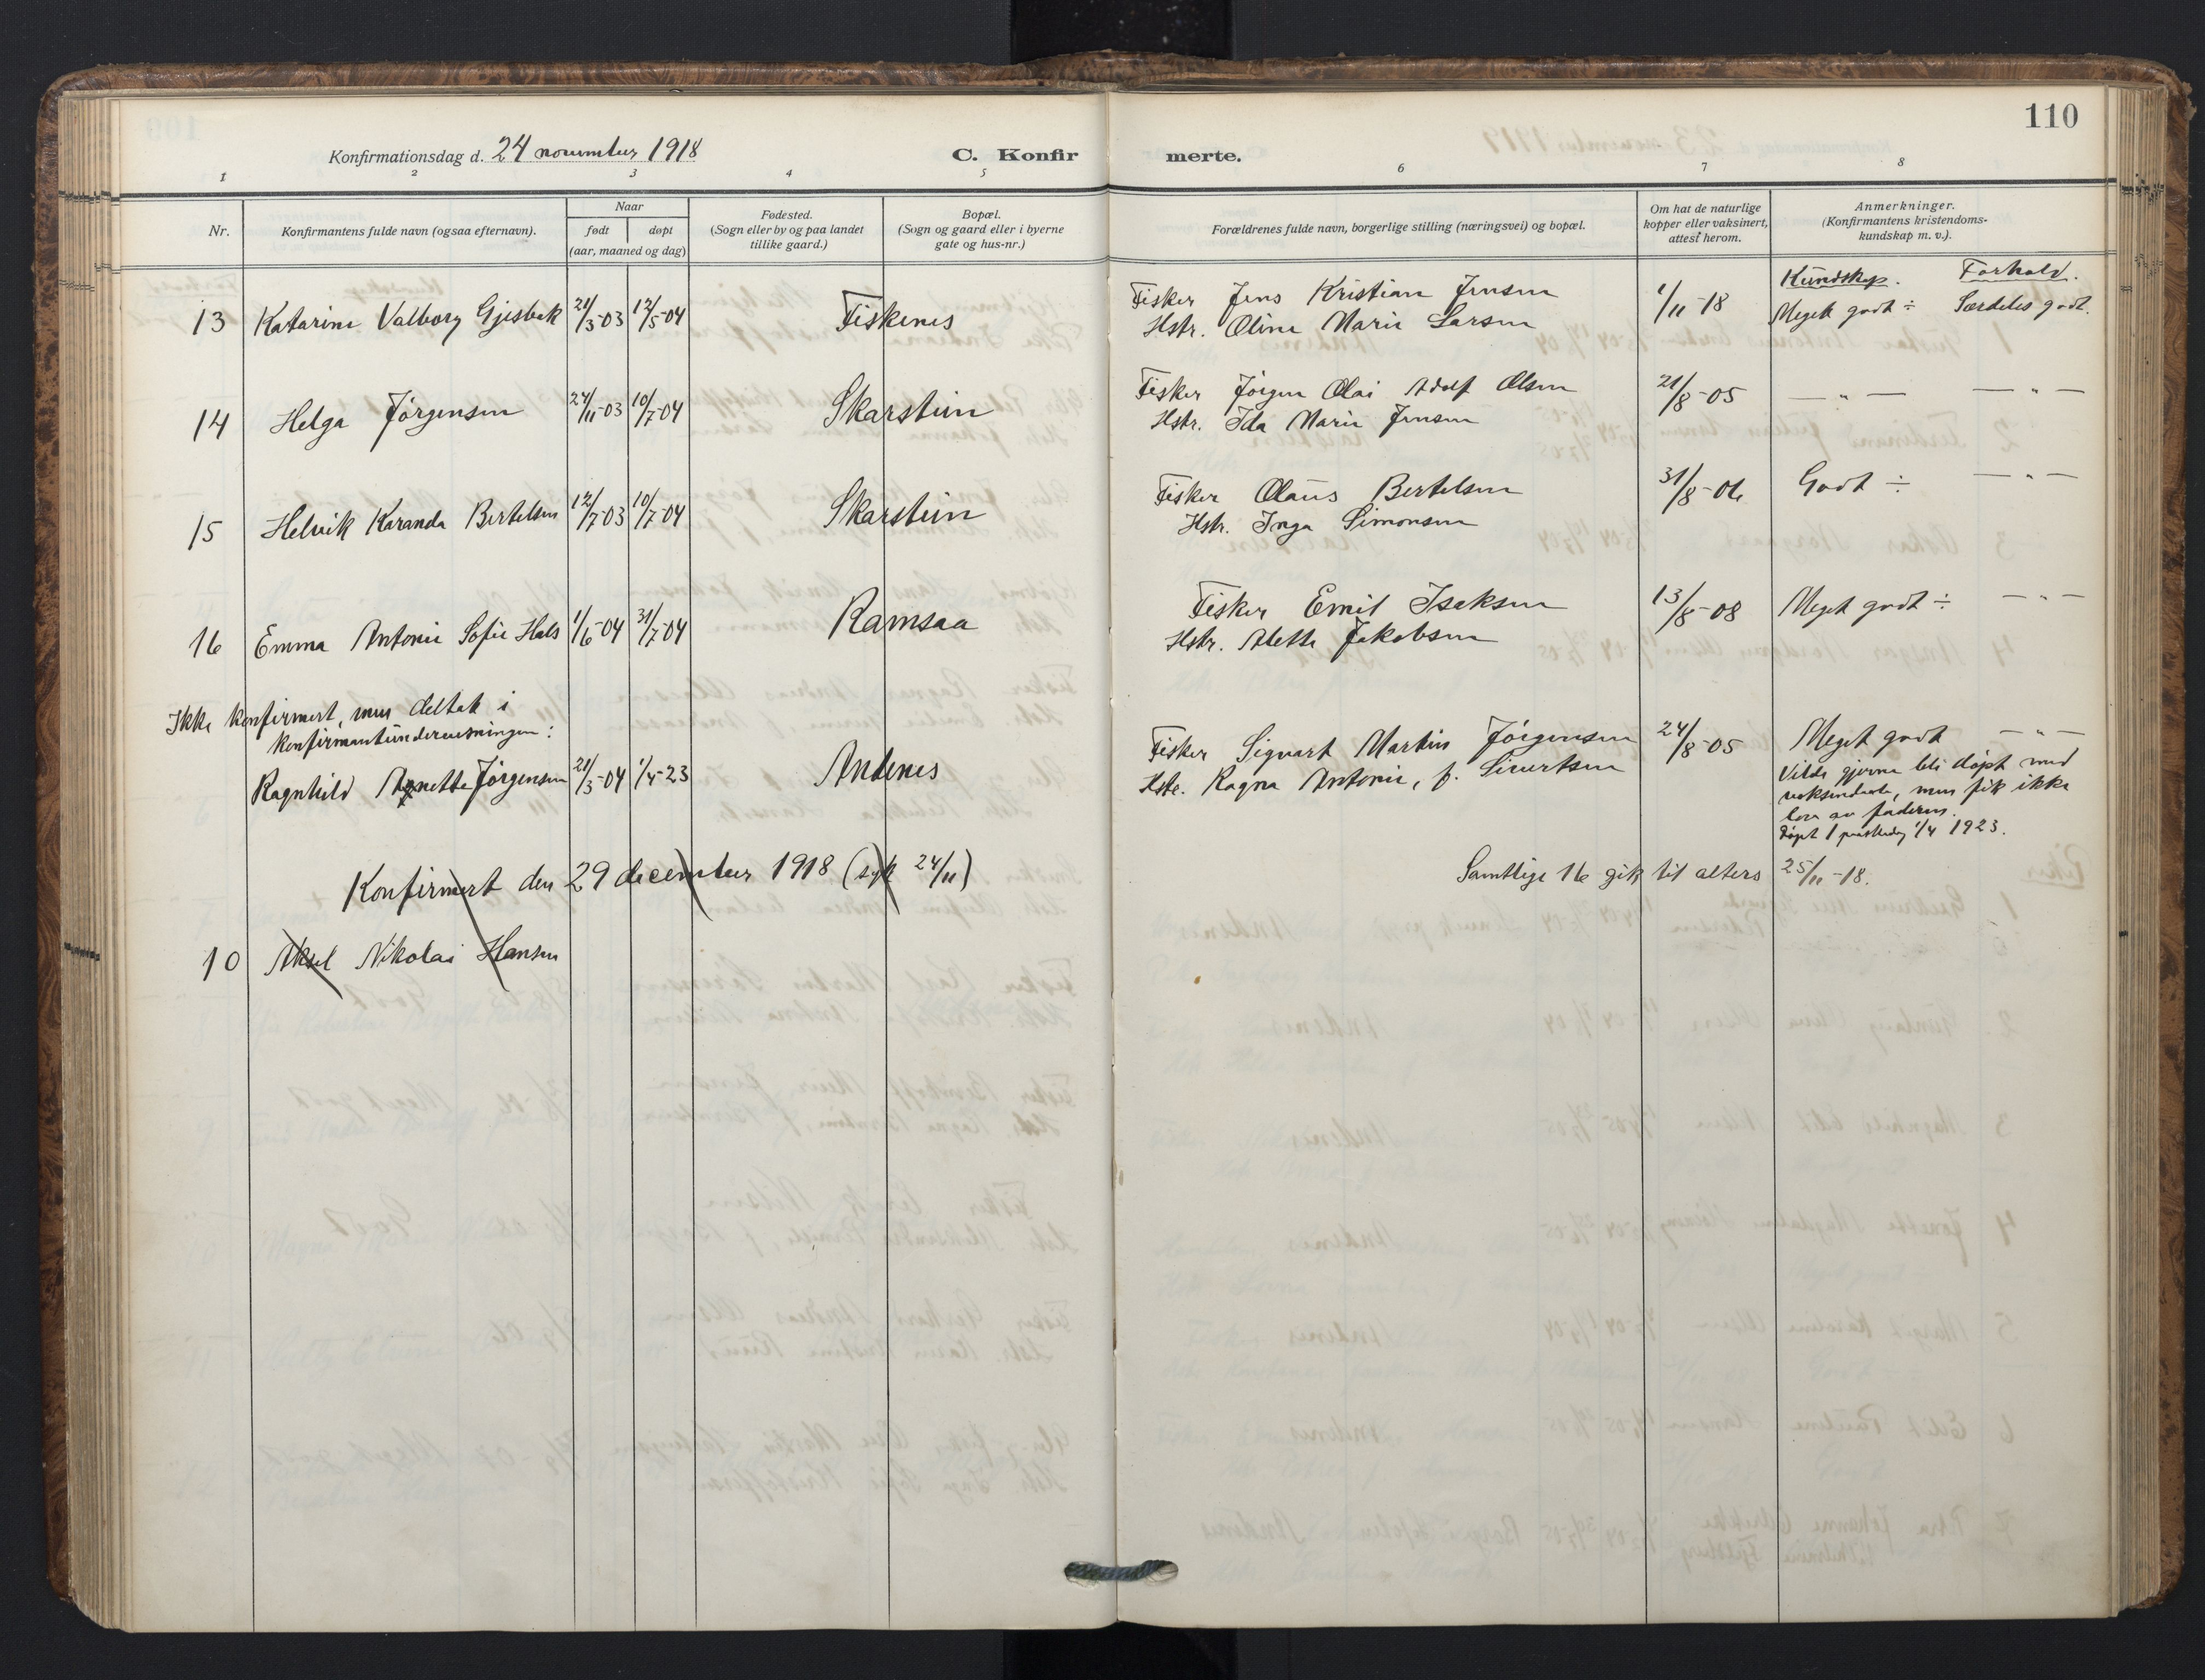 110
Konfirmationsdag d. 24 november 1918
C. Konfir merte.
1 2 3 4 5 6 7 8
Nr.
Konfirmantens fulde navn (ogsaa efternavn).
Naar
født døpt
(aar, maaned og dag)
Fødested.
(Sogn eller by og paa landet
tillike gaard.)
Bopæl.
(Sogn og gaard eller i byerne
gate og hus-nr.)
Forældrenes fulde navn, borgerlige stilling (næringsvei) og bopæl.
Om hat de naturlige
kopper eller vaksinert,
attest herom.
Anmerkninger.
(Konfirmantens kristendoms-
kundskap m. v.).
Kundskap. Forhold.
13 Katarine Valborg Gjesbak 21/3-03 12/5-04 Fiskenes Fisker Jens Kristian Jensen 1/11-18 Meget godt ÷ Særdeles godt.
Hstr. Oline Marie Larsen
14 Helga Jörgensen 24/11-03 10/7-04 Skarstein Fisker Jörgen Olai Adolf Olsen 21/8-05 — „ — — „ —
Hstr. Ida Marie Jensen
15 Helvik Karanda Bertelsen 12/7-03 10/7-04 Skarstein Fisker Olaus Bertelsen 31/8-06 Godt ÷ — „ —
Hstr. Inga Simonsen
16 Emma Antonie Sofie Hals 1/6-04 31/7-04 Ramsaa Fisker Emil Isaksen 13/8-08 Meget godt ÷ — „ —
Hstr. Aletta Jakobsen
Ikke konfirmert, men deltak i
konfirmantundervisningen:
Ragnhild Anette Jörgensen 21/3-04 1/4-23 Andenes Fisker Sigvart Martin Jörgensen 24/8-05 Meget godt — „ —
Hstr. Ragna Antonie, f. Sivertsen
Vilde gjerne bli døpt med
voksendaab, men fik ikke
lov av faderen.
Døpt 1 paaskedag 1/4 1923.
Konfirmert den 29 december 1918 (syk 24/11)
Samtlige 16 gik til alters 25/11-18.
10 Aksel Nikolai Hansen